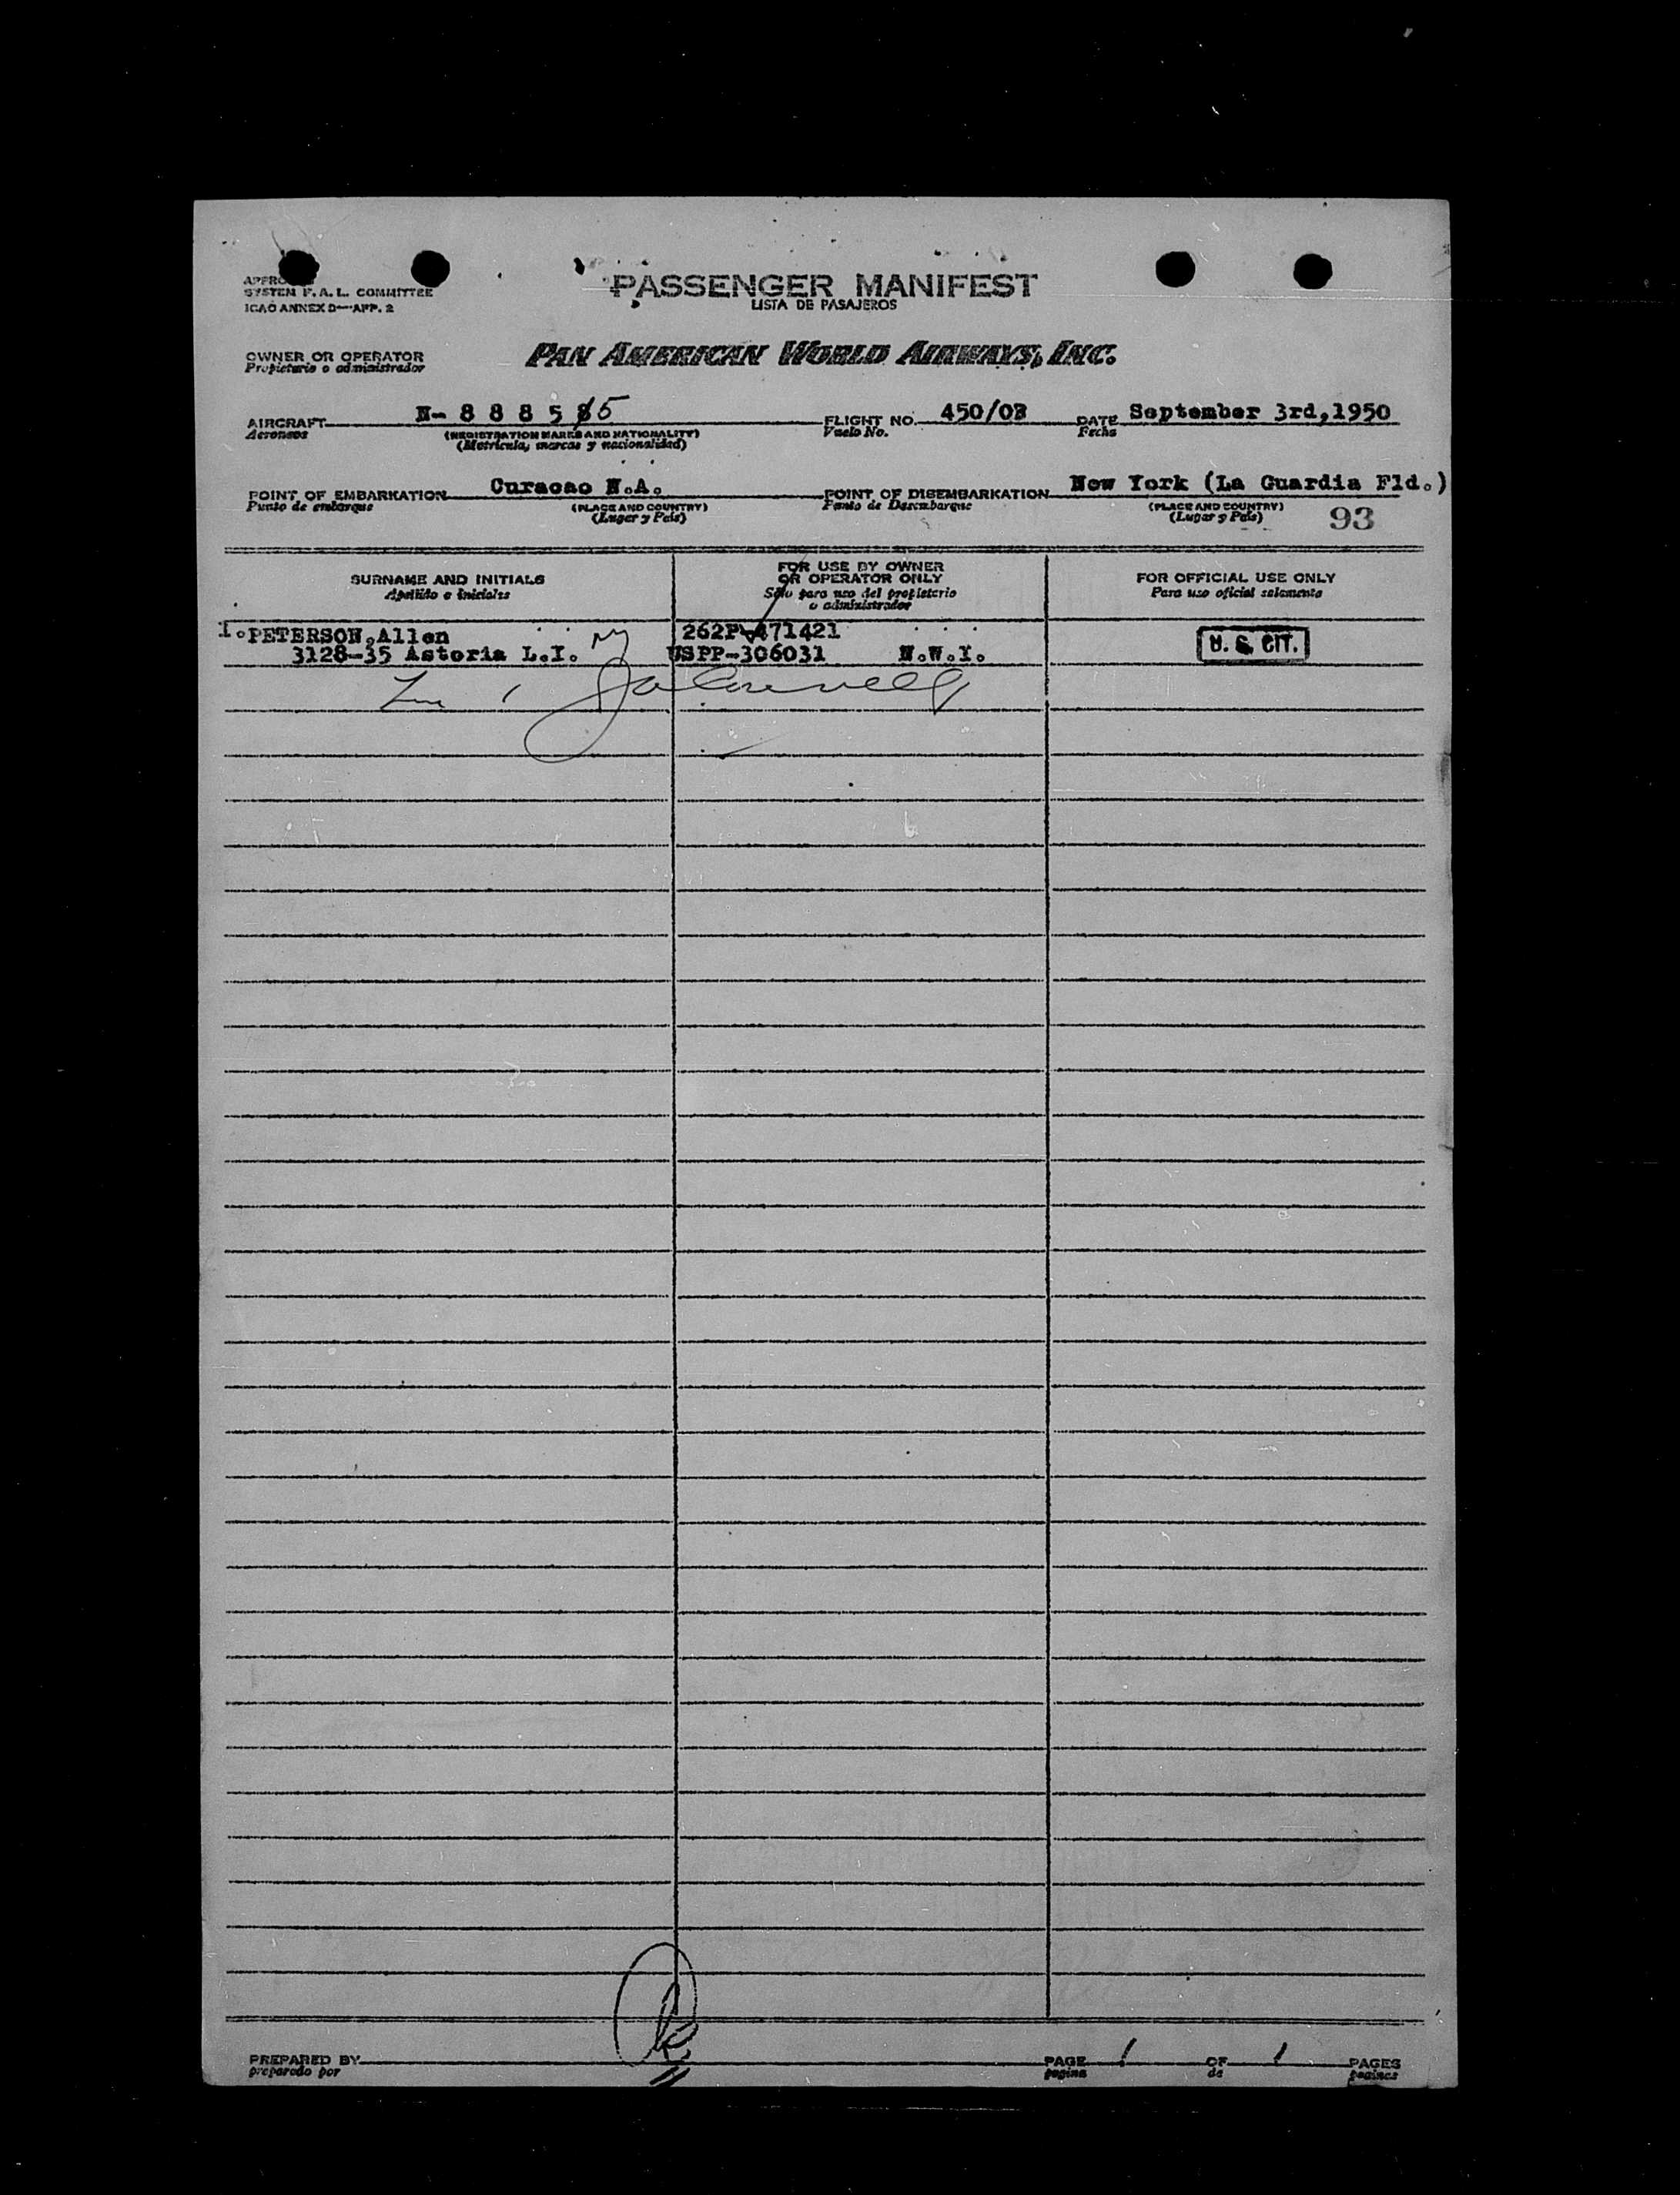 PASSENGER MANIFEST
LISTA DE PASAJEROS
SYSTEM F.A.L. COMMITTEE
ICAO ANNEX D—APP. 2
OWNER OR OPERATOR
Propietario o administrador
PAN AMERICAN WORLD AIRWAYS, INC.
AIRCRAFT N- 8 8 8 5 5 FLIGHT NO. 450/03 DATE September 3rd,1950
Aeronaos (REGISTRATION MARKS AND NATIONALITY) Vuelo No. Fecha
(Matrícula, marcas y nacionalidad)
POINT OF EMBARKATION Curacao N.A. POINT OF DISEMBARKATION New York (La Guardia Fld.)
Punto de embarque (PLACE AND COUNTRY) Punto de Desembarque (PLACE AND COUNTRY)
(Lugar y País) (Lugar y País) 93
SURNAME AND INITIALS FOR USE BY OWNER OR OPERATOR ONLY FOR OFFICIAL USE ONLY
Apellido e iniciales Sólo para uso del propietario o administrador Para uso oficial solamente
1. PETERSON,Allen 262P-471421
3128-35 Astoria L.I. NY USPP-306031 N.W.Y. U. S. CIT.
PREPARED BY PAGE 1 OF 1 PAGES
preparado por pagina de paginas